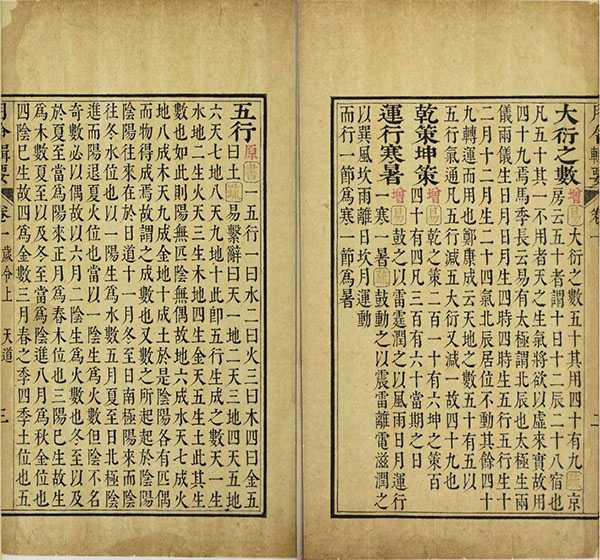 月令輯要 卷一 二
大衍之數 增 易 大衍之數五十其用四十有九 疏 京
房云五十者謂十日十二辰二十八宿也
凡五十其一不用者天之生氣將欲以虛來實故用
四十九焉馬季長云易有太極謂北辰也太極生兩
儀兩儀生日月日月生四時四時生五行五行生十
二月十二月生二十四氣北辰居位不動其餘四十
九轉運而用也鄭康成云天地之數五十有五以
五行氣通凡五行減五大衍又減一故四十九也
乾策坤策 增 易 乾之策二百一十有六坤之策百
四十有四凡三百有六十當期之日
運行寒暑 增 易 鼓之以雷霆潤之以風雨日月運行
一寒一暑 疏 鼓動之以震雷離電滋潤之
以巽風坎雨離日坎月運動
而行一節爲寒一節爲暑
五行 原 書 一五行一曰水二曰火三曰木四曰金五
曰土 疏 易繫辭曰天一地二天三地四天五地
六天七地八天九地十此即五行生成之數天一生
水地二生火天三生木地四生金天五生土此其生
數也如此則陽無匹陰無偶故地六成水天七成火
地八成木天九成金地十成土於是陰陽各有匹偶
而物得成焉故謂之成數也又數之所起起於陰陽
陰陽往來在於日道十一月冬至日南極陽來而陰
往冬水位也以一陽生爲水數五月夏至日北極陰
進而陽退夏火位也當以一陰生爲火數但陰不名
奇數必以偶故以六月二陰生爲火數也冬至以及
於夏至當爲陽來正月爲春木位也三陽已生故生
爲木數夏至以及冬至當爲陰進八月爲秋金位也
四陰已生故四爲金數三月春之季四季土位也五
月令輯要 卷一歲令上 天道 三